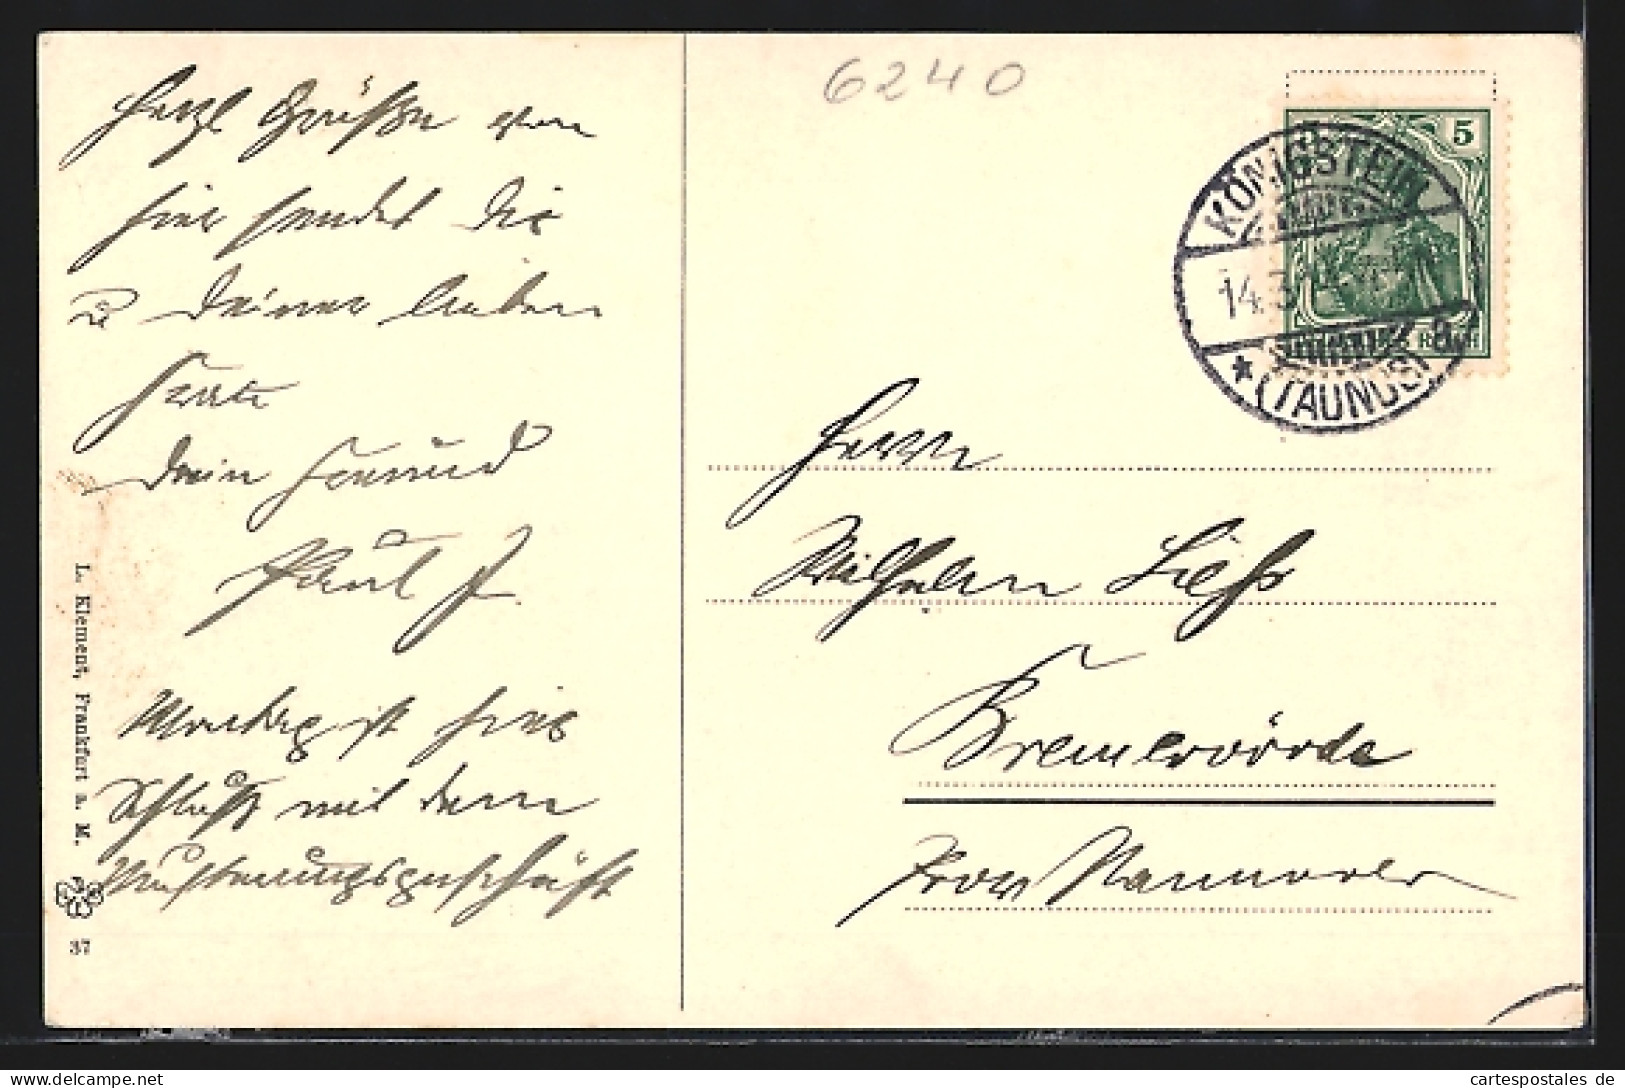 Herzl Grüße von
hier sendet Dir
u Deiner lieben
Frau
Dein Freund
Paul
Montag ist hier
Schluß mit dem
Musterungsgeschäft
L. Klement, Frankfurt a. M.
37
6240
5
KÖNIGSTEIN
14.3
(TAUNUS)
a.
Herrn
Wilhelm
Bremervörde
Prov Hannover
cartespostales de